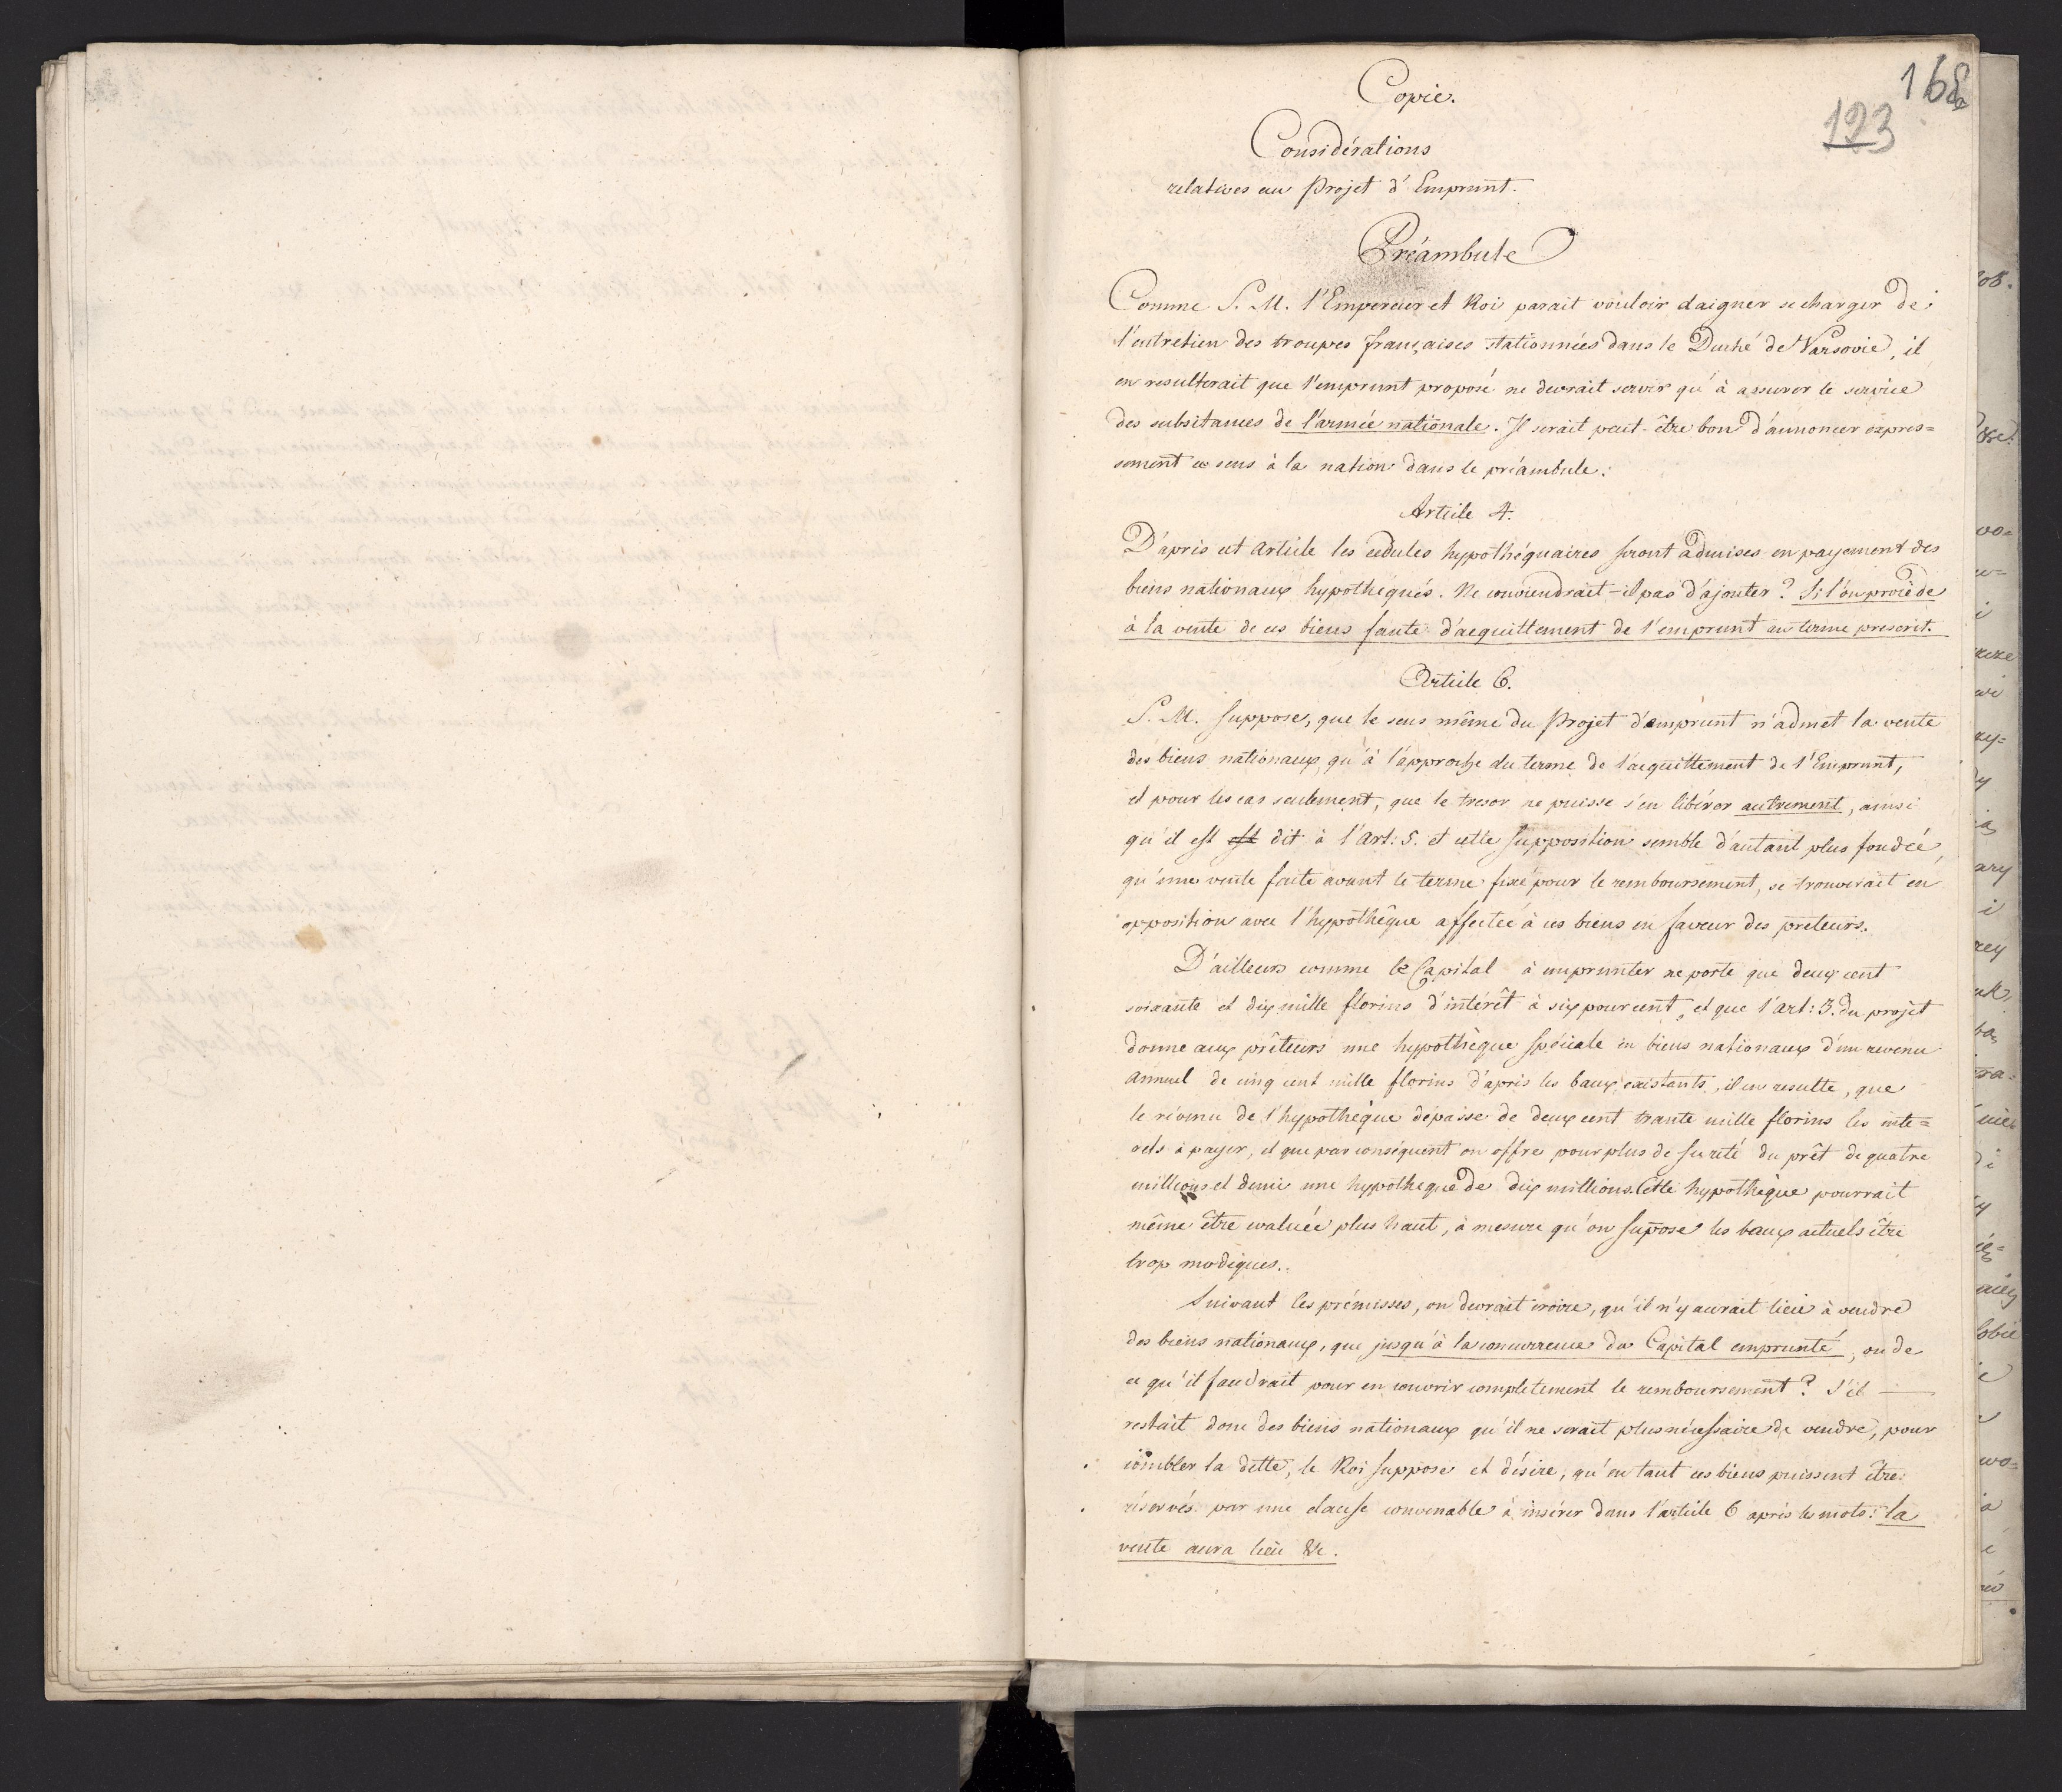 Copie.
168
123
Considérations
relatives au Projet d'Emprunt.
Préambule
Comme S. M. l'Empereur et Roi parait vouloir daigner se charger de
l'entretien des troupes françaises stationnées dans le Duché de Varsovie, il
en resulterait que l'emprunt proposé ne devrait servir qu'à assurer le service
des subsitances de l'armée nationale. Il serait peut-être bon d'annoncer expres=
sement ce sens à la nation dans le préambule.
Article 4.
D'après cet Article les cedules hypothéquaires seront admises en payement des
biens nationaux hypothéqués. Ne conviendrait-il pas d'ajouter? Si l'on procède
à la vente de ces biens faute d'acquittement de l'emprunt au terme prescrit.
Article 6.
S. M. suppose, que le sens même du Projet d'emprunt n'admet la vente
des biens nationaux, qu'à l'approche du terme de l'acquittement de l'Emprunt,
et pour les cas seulement, que le tresor ne puisse s'en libérer autrement, ainsi
qu'il est est dit à l'Art: 5. et cette supposition semble d'autant plus fondée,
qu'une vente faite avant le terme fixé pour le remboursement, se trouverait en
opposition avec l'hypothêque affectée à ces biens en faveur des preteurs.
D'ailleurs comme le Capital à emprunter ne porte que deux cent
soixante et dix mille florins d'intérêt à six pour cent, et que l'art: 3. du projet
donne aux prêteurs une hypothèque spéciale en biens nationaux d'un revenu
annuel de cinq cent mille florins d'après les baux existants, il en resulte, que
le révenu de l'hypothèque depasse de deux cent trante mille florins les inte=
rets à payer, et que par conséquent on offre pour plus de sureté du prêt de quatre
millions et demi une hypotheque de dix millions. Cette hypothèque pourrait
même être evaluée plus haut, à mesure qu'on supose les baux actuels être
trop modiques.
Suivant les prémisses, on devrait croire, qu'il n'y aurait lieu à vendre
des biens nationaux, que jusqu'à la concurrence du Capital emprunté, ou de
ce qu'il faudrait pour en couvrir completement le remboursement? S'il
restait donc des biens nationaux qu'il ne serait plus nécessaire de vendre, pour
combler la dette, le Roi suppose et désire, qu'en tant ces biens puissent être
réservés par une clause convenable à insérer dans l'article 6 après les mots: la
vente aura lieu &c.